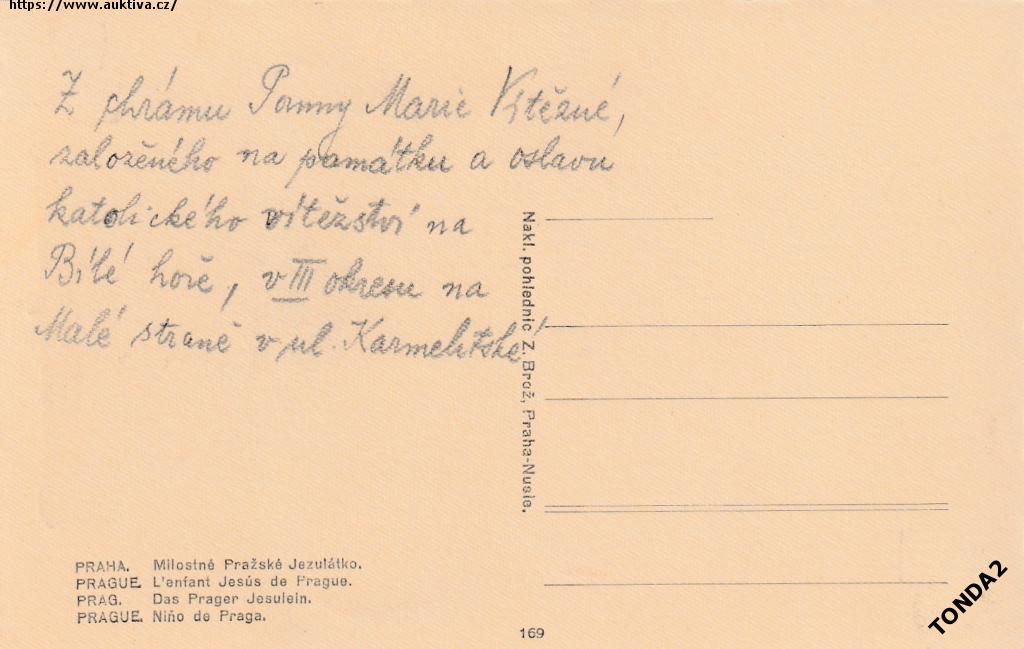 https://www.auktiva.cz/
Z chrámu Panny Marie Vítězné,
založeného na památku a oslavu
katolického vítězství na
Bílé hoře, v III okresu na
Malé straně v ul. Karmelitské
Nakl. pohlednic Z. Brož, Praha-Nusle.
PRAHA. Milostné Pražské Jezulátko.
PRAGUE. L'enfant Jesús de Prague.
PRAG. Das Prager Jesulein.
PRAGUE. Niño de Praga.
169
TONDA2